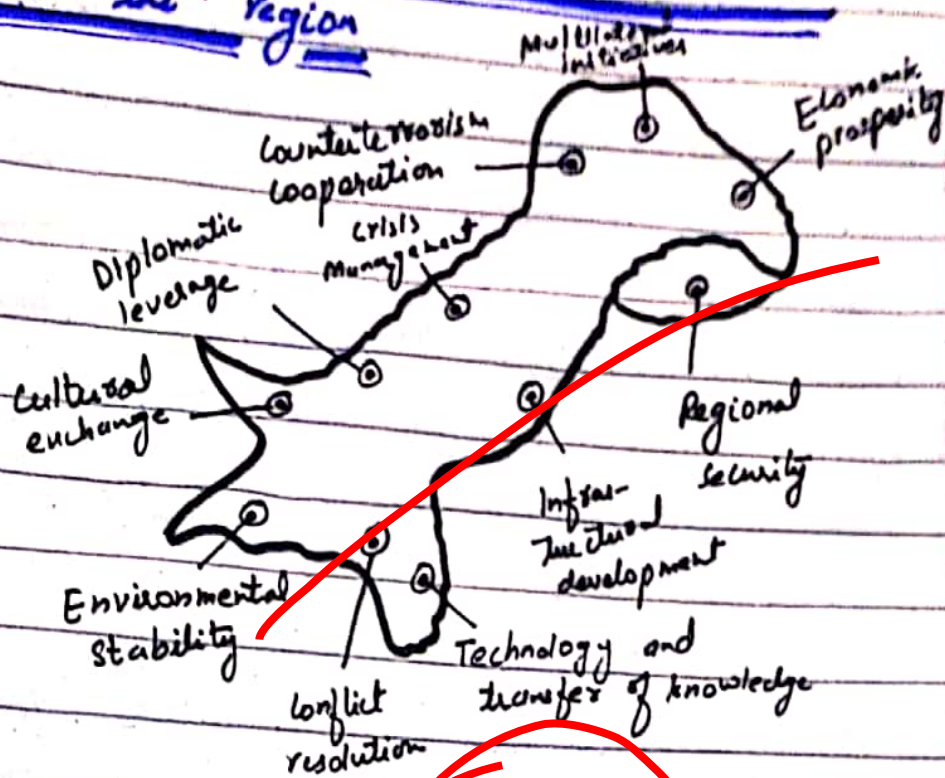 region
Multilateral
initiatives
Economic
prosperity
Counterterrorism
cooperation
crisis
management
Diplomatic
leverage
Cultural
exchange
Regional
security
Infras-
tructural
development
Environmental
stability
Technology and
transfer of knowledge
Conflict
resolution